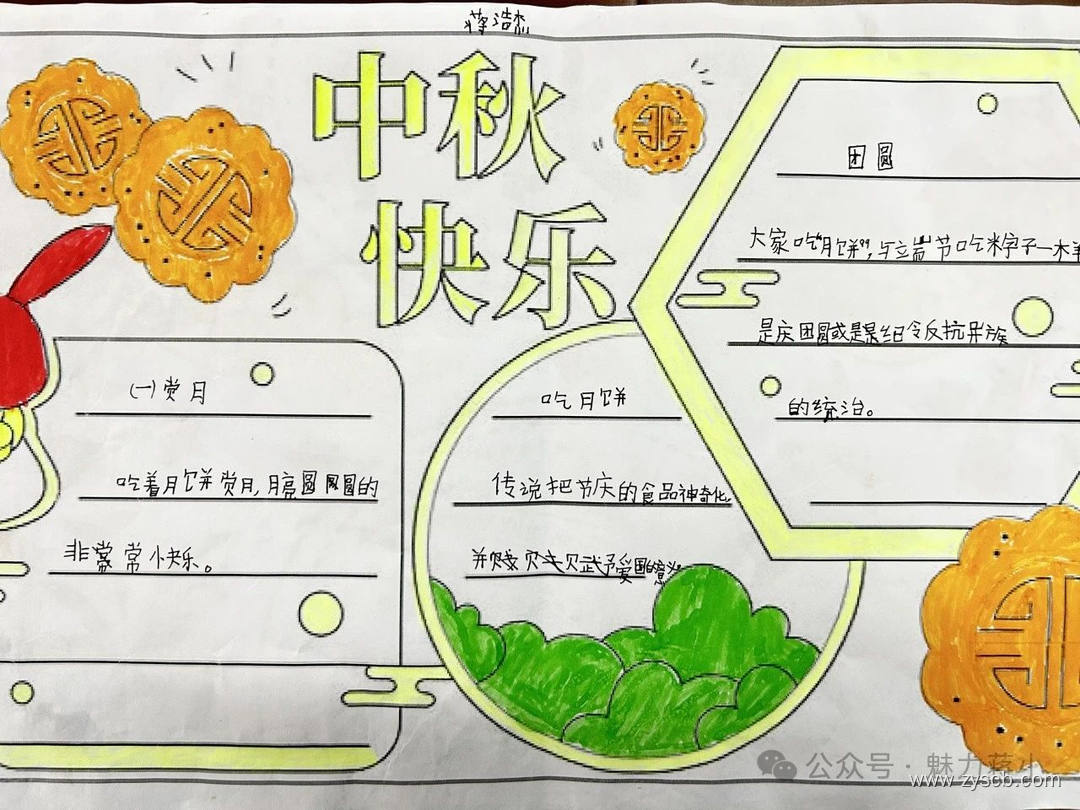 蒋浩杰
中秋
快乐
团圆
大家吃"月饼",与端节吃粽子一木羊
是庆团圆或是纪令反抗异族
的统治。
(一)赏月
吃着月饼赏月,月亮圆圆圆的
非常常小快乐。
吃月饼
传说把节庆的食品神奇化,
并贱予爱国的意义
公众号·魅力蔡小
www.zyscb.com